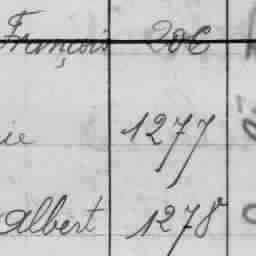 François 206
ie 1277
Albert 1278